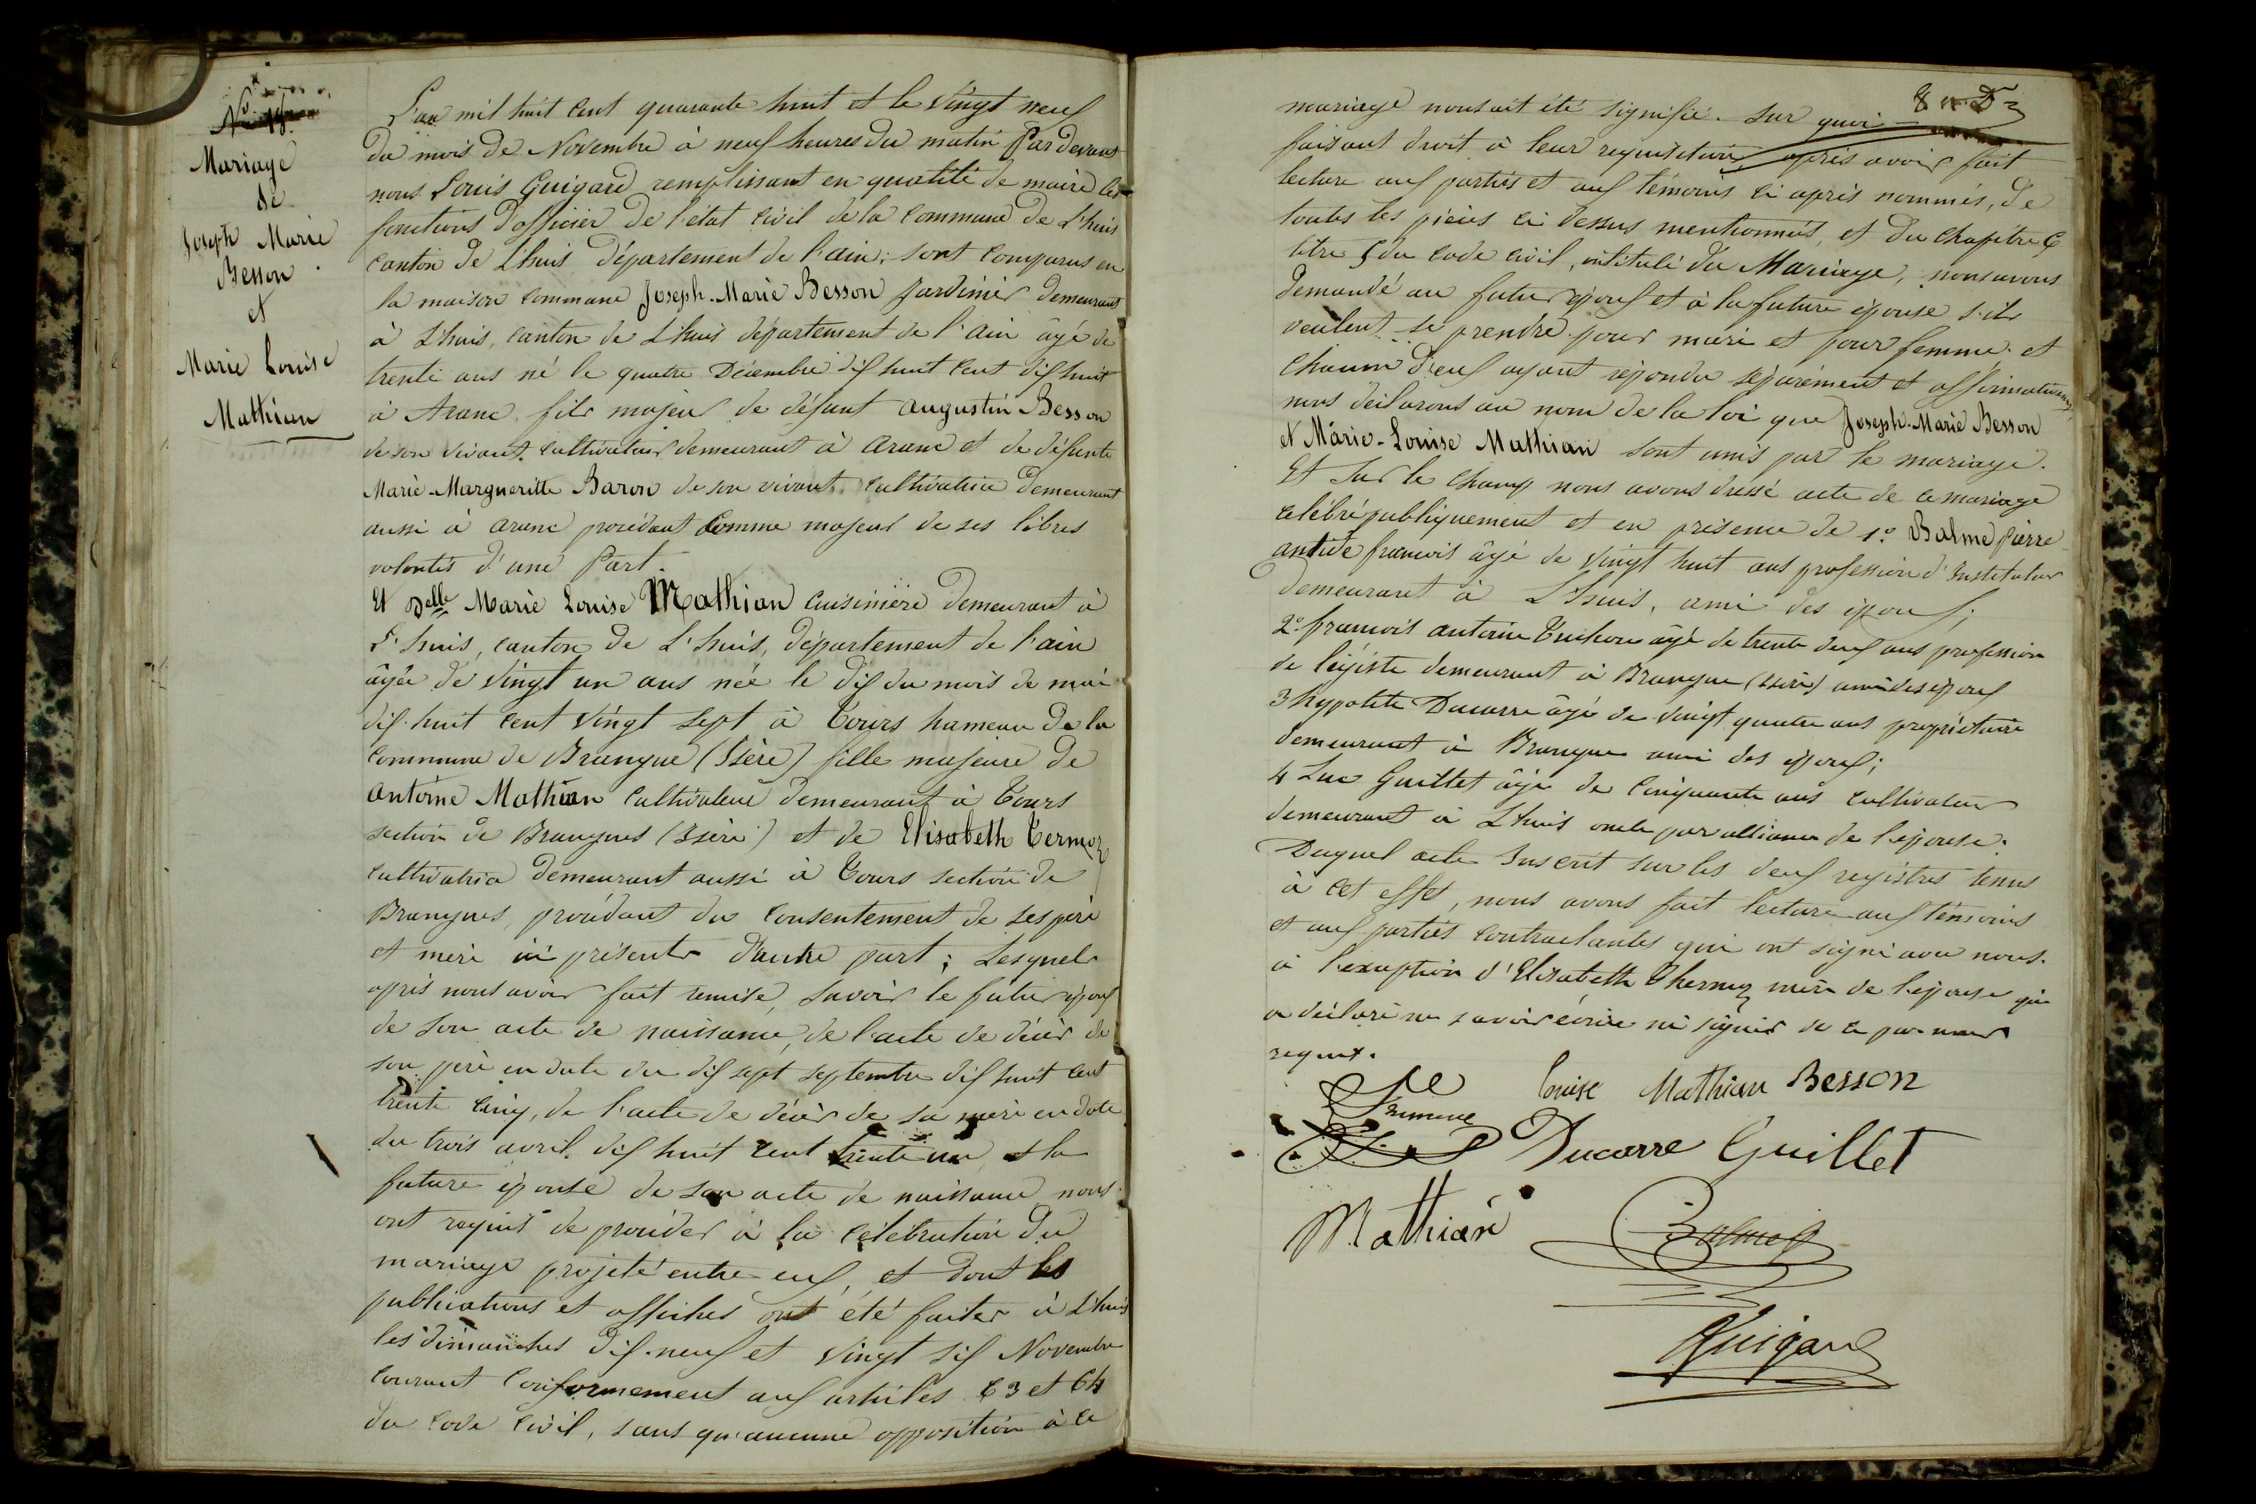 No 18.
Mariage
de
Joseph Marie
Besson
et
Marie Louise
Mathian
L'an mil huit cent quarante huit et le vingt neuf
du mois de Novembre à neuf heures du matin Par devant
nous Louis Guigard remplissant en qualité de maire les
fonctions d'officier de l'état civil de la commune de L'huis
canton de L'huis département de l'ain; sont comparus en
la maison commune Joseph-Marie Besson Jardinier demeurant
à L'huis, canton de L'huis département de l'ain âgé de
trente ans né le quatre Décembre dix huit cent dix huit
à Aranc fils majeur de défunt augustin Besson
de son vivant cultivateur demeurant à aranc et de défunte
Marie-Margueritte Baron de son vivant cultivatrice demeurant
aussi à aranc procédant comme majeur de ses libres
volontés d'une Part.
Et Delle Marie Louise Mathian cuisinière demeurant à
L'huis, canton de L'huis, département de l'ain
âgée de vingt un ans née le dix du mois de mai
dix-huit cent vingt sept à Tours hameau de la
commune de Brangue (Isère) fille majeure de
antoine Mathian cultivateur demeurant à Tours
section de Brangues (Isère) et de Elisabeth Termoz
cultivatrice demeurant aussi à Tours section de
Brangues, procédant du consentement de ses père
et mère ici présents d'autre part; Lesquels
après nous avoir fait remise, savoir le futur époux
de son acte de naissance, de l'acte de décès de
son père en date du dix sept septembre dix huit cent
trente cinq, de l'acte de décès de sa mère en date
du trois avril dix huit cent trente un et la
future épouse de son acte de naissance nous
ont requis de procéder à la célébration du
mariage projeté entre eux, et dont les
publications et affiches ont été faites à L'huis
les dimanches dix-neuf et vingt six Novembre
courant conformement aux articles 63 et 64
du code civil, sans qu'aucune opposition à ce
mariage nous ait été signifiée. Sur quoi
faisant droit à leur requisitoire, après avoir fait
lecture aux parties et aux témoins ci après nommés, de
toutes les pièces ci dessus mentionnées, et du chapitre 6
titre 5 du code civil, intitulé du Mariage, nous avons
demandé au futur époux et à la future épouse s'ils
veulent se prendre pour mari et pour femme et
chacun d'eux ayant répondu séparément et affirmativement
nous déclarons au nom de la loi que Joseph-Marie Besson
et Marie-Louise Mathian sont unis par le mariage.
Et sur le champ nous avons dressé acte de ce mariage
célébré publiquement et en présence de 1º Balme pierre
antide francois âgé de vingt huit ans profession d'Instituteur
demeurant à L'huis, ami des époux;
2º francois antoine âgé de trente deux ans profession
de légiste demeurant à Brangue (Isère) ami des époux
3 hypolite Ducarre âgé de vingt quatre ans propriétaire
demeurant à Brangue ami des époux;
4 Luc Guillet âgé de cinquante ans cultivateur
demeurant à L'huis oncle par alliance de l'épouse.
Duquel acte Inscrit sur les deux registres tenus
à cet effet, nous avons fait lecture aux témoins
et aux parties contractantes qui ont signé avec nous.
à l'exception d'Elisabeth Thermoz mère de l'épouse qui
a déclaré ne savoir écrire ni signer de ce par nous
requise.
louise Mathian Besson
Ducarre Guillet
Mathian Balme
Guigard